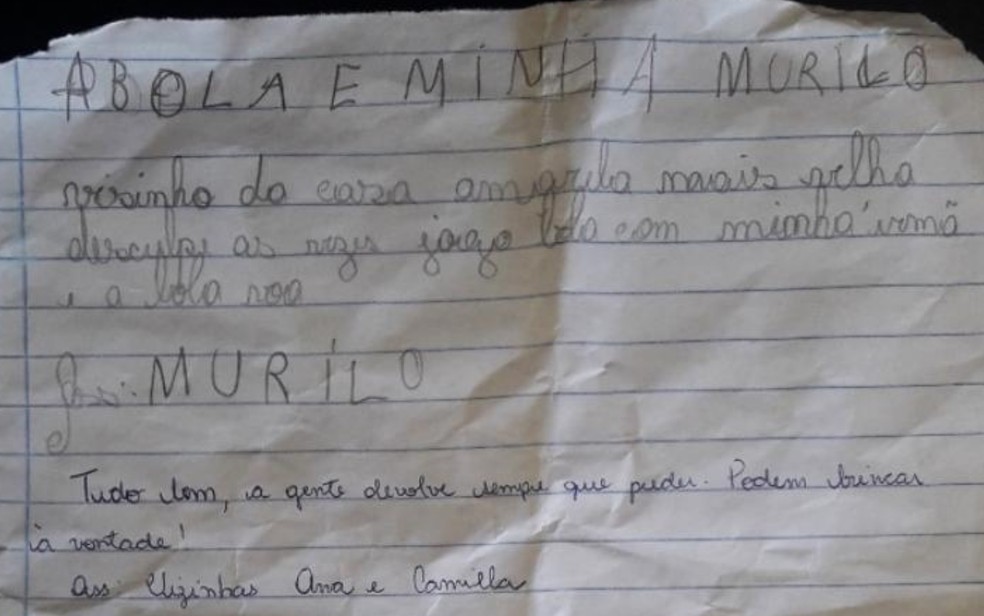 A BOLA E MINHA MURILO
vizinho da casa amarela mais velha
desculpe as vezes jogo bola com minha irmã
e a bola voa
Ass: MURILO
Tudo bem, a gente devolve sempre que puder. Podem brincar
à vontade!
Ass: Vizinhas Ana e Camilla